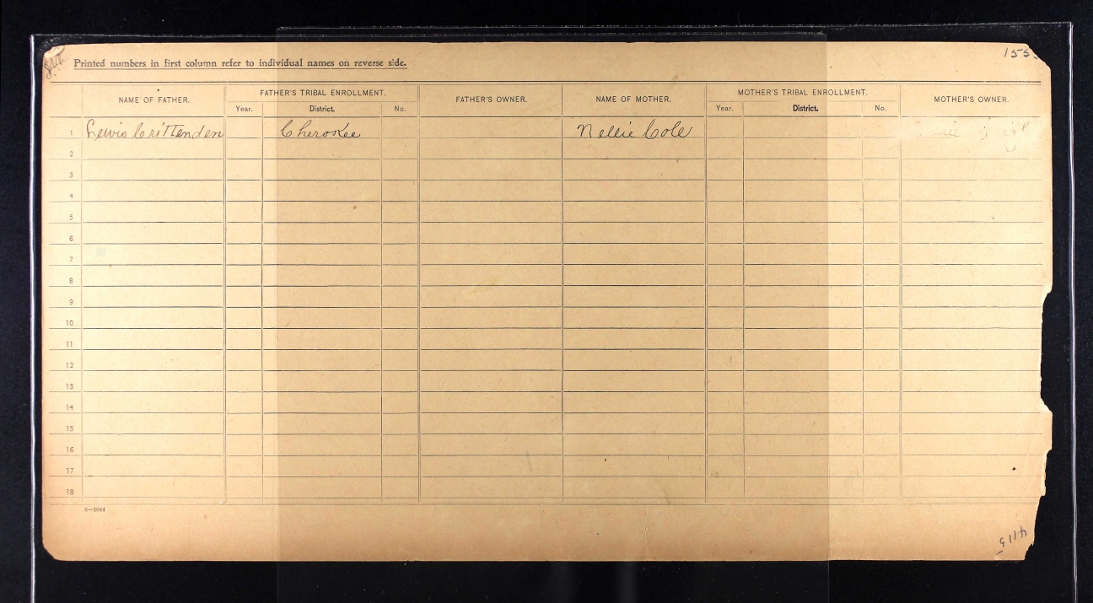 155
Printed numbers in first column refer to individual names on reverse side.
NAME OF FATHER. FATHER'S TRIBAL ENROLLMENT. FATHER'S OWNER. NAME OF MOTHER. MOTHER'S TRIBAL ENROLLMENT. MOTHER'S OWNER.
Year. District. No. Year. District. No.
1 Lewis Crittenden Cherokee Nellie Cole
2
3
4
5
6
7
8
9
10
11
12
13
14
15
16
17
18
4115